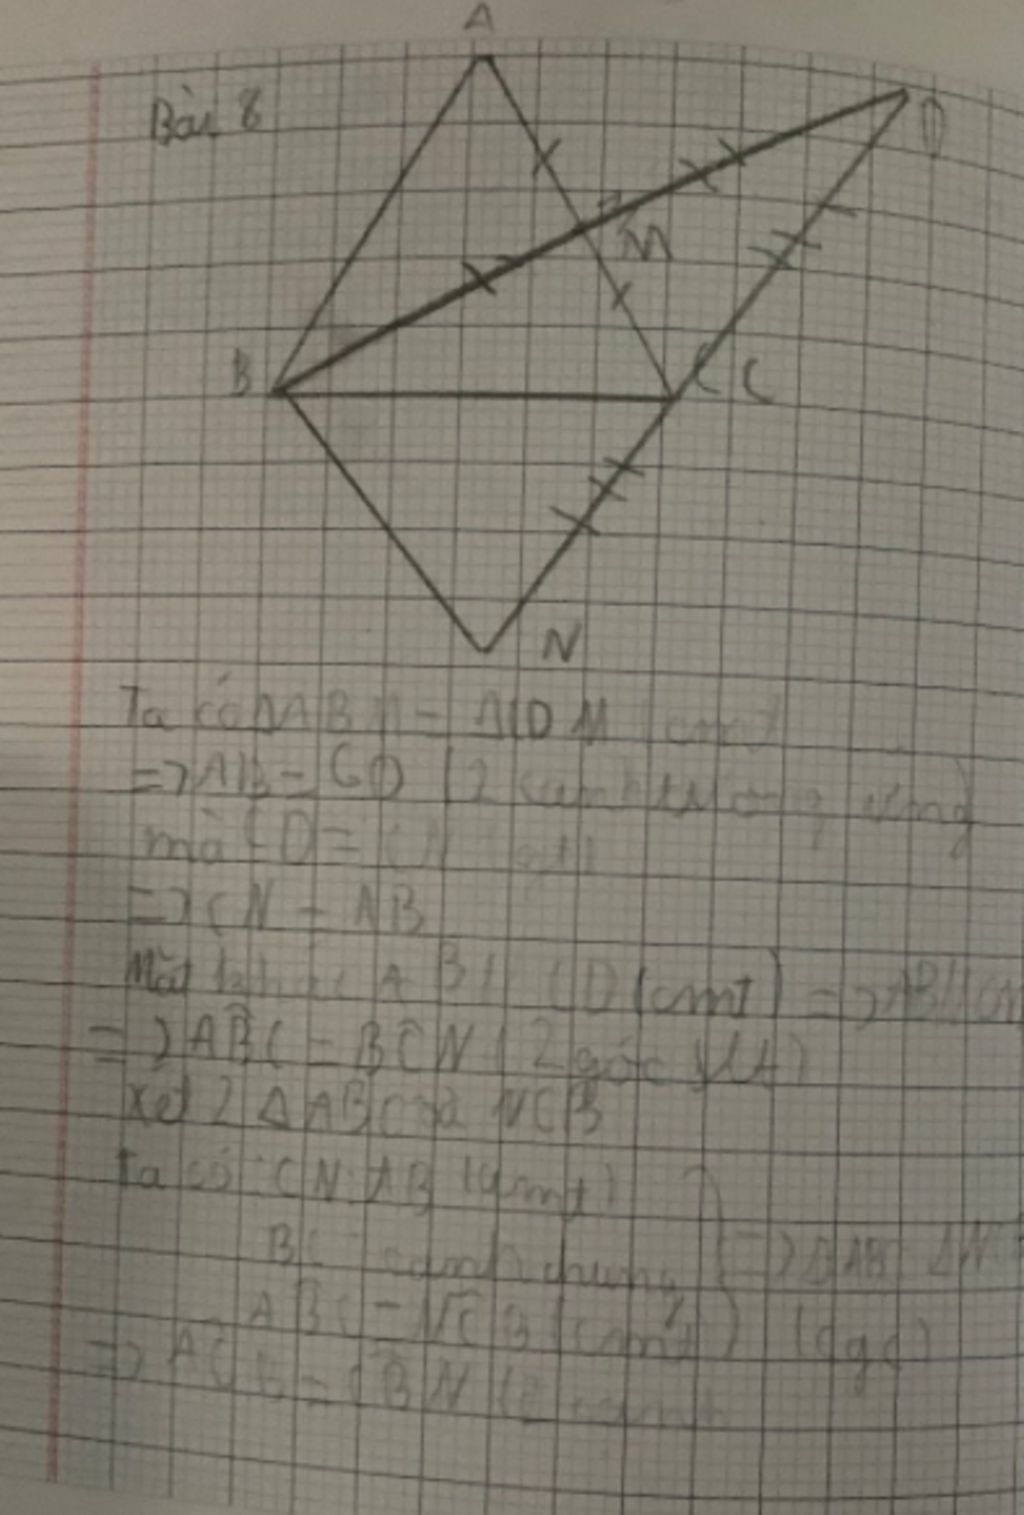 A
Bài 8
D
M
B
C C
N
Ta có ΔABM = ΔCDM (cmt)
=> AB = CD (2 cạnh tương ứng)
mà CD = CN (gt)
=> CN = AB
Mặt khác AB // CD (cmt) => AB // CN
=> ABC = BCN (2 góc SLT)
Xét 2 Δ ABC và NCB
Ta có: CN = AB (cmt)
BC cạnh chung => ΔABC
ABC = NCB (cmt) (cgc)
=> ACB = CBN (2